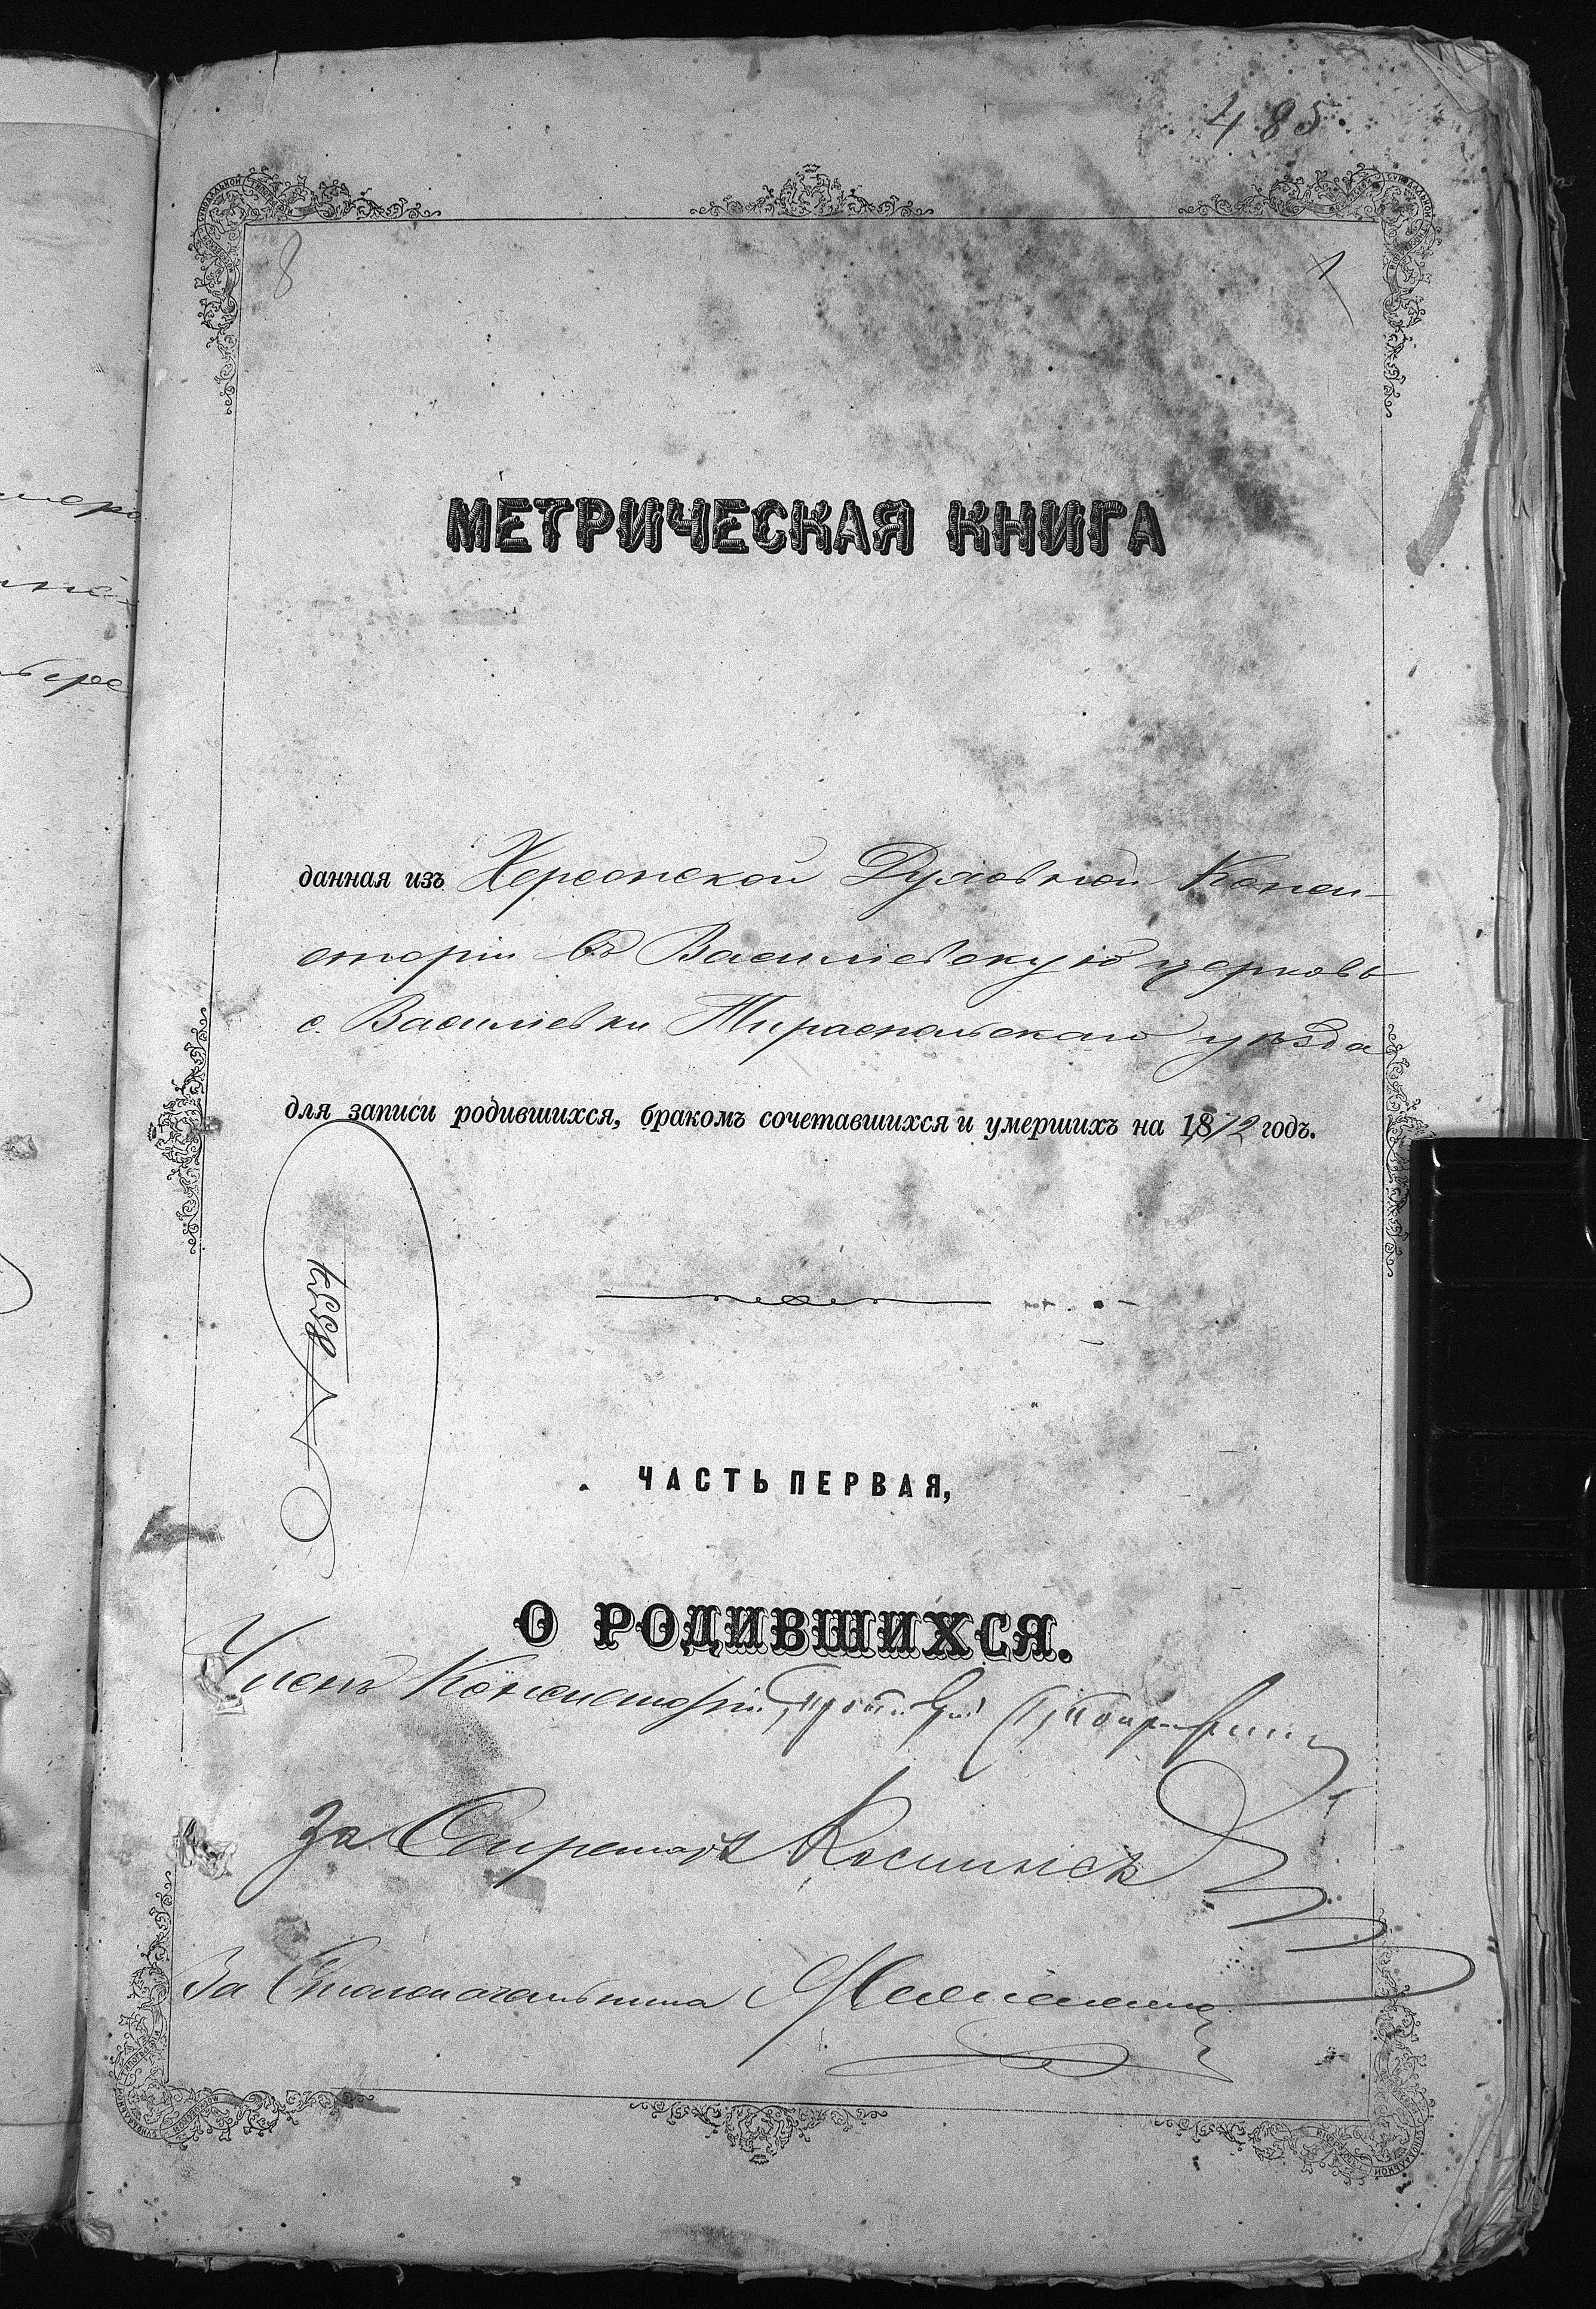 485.
8
1
МЕТРИЧЕСКАЯ КНИГА
данная изъ Херсонской Духовной Конси-
сторіи въ Василіевскую церковь
с. Василіевки Тираспольскаго уѣзда
для записи родившихся, бракомъ сочетавшихся и умершихъ на 1872 годъ.
ЧАСТЬ ПЕРВАЯ,
О РОДИВШИХСЯ.
Членъ Консисторіи
За Секретаря
За Столоначальника